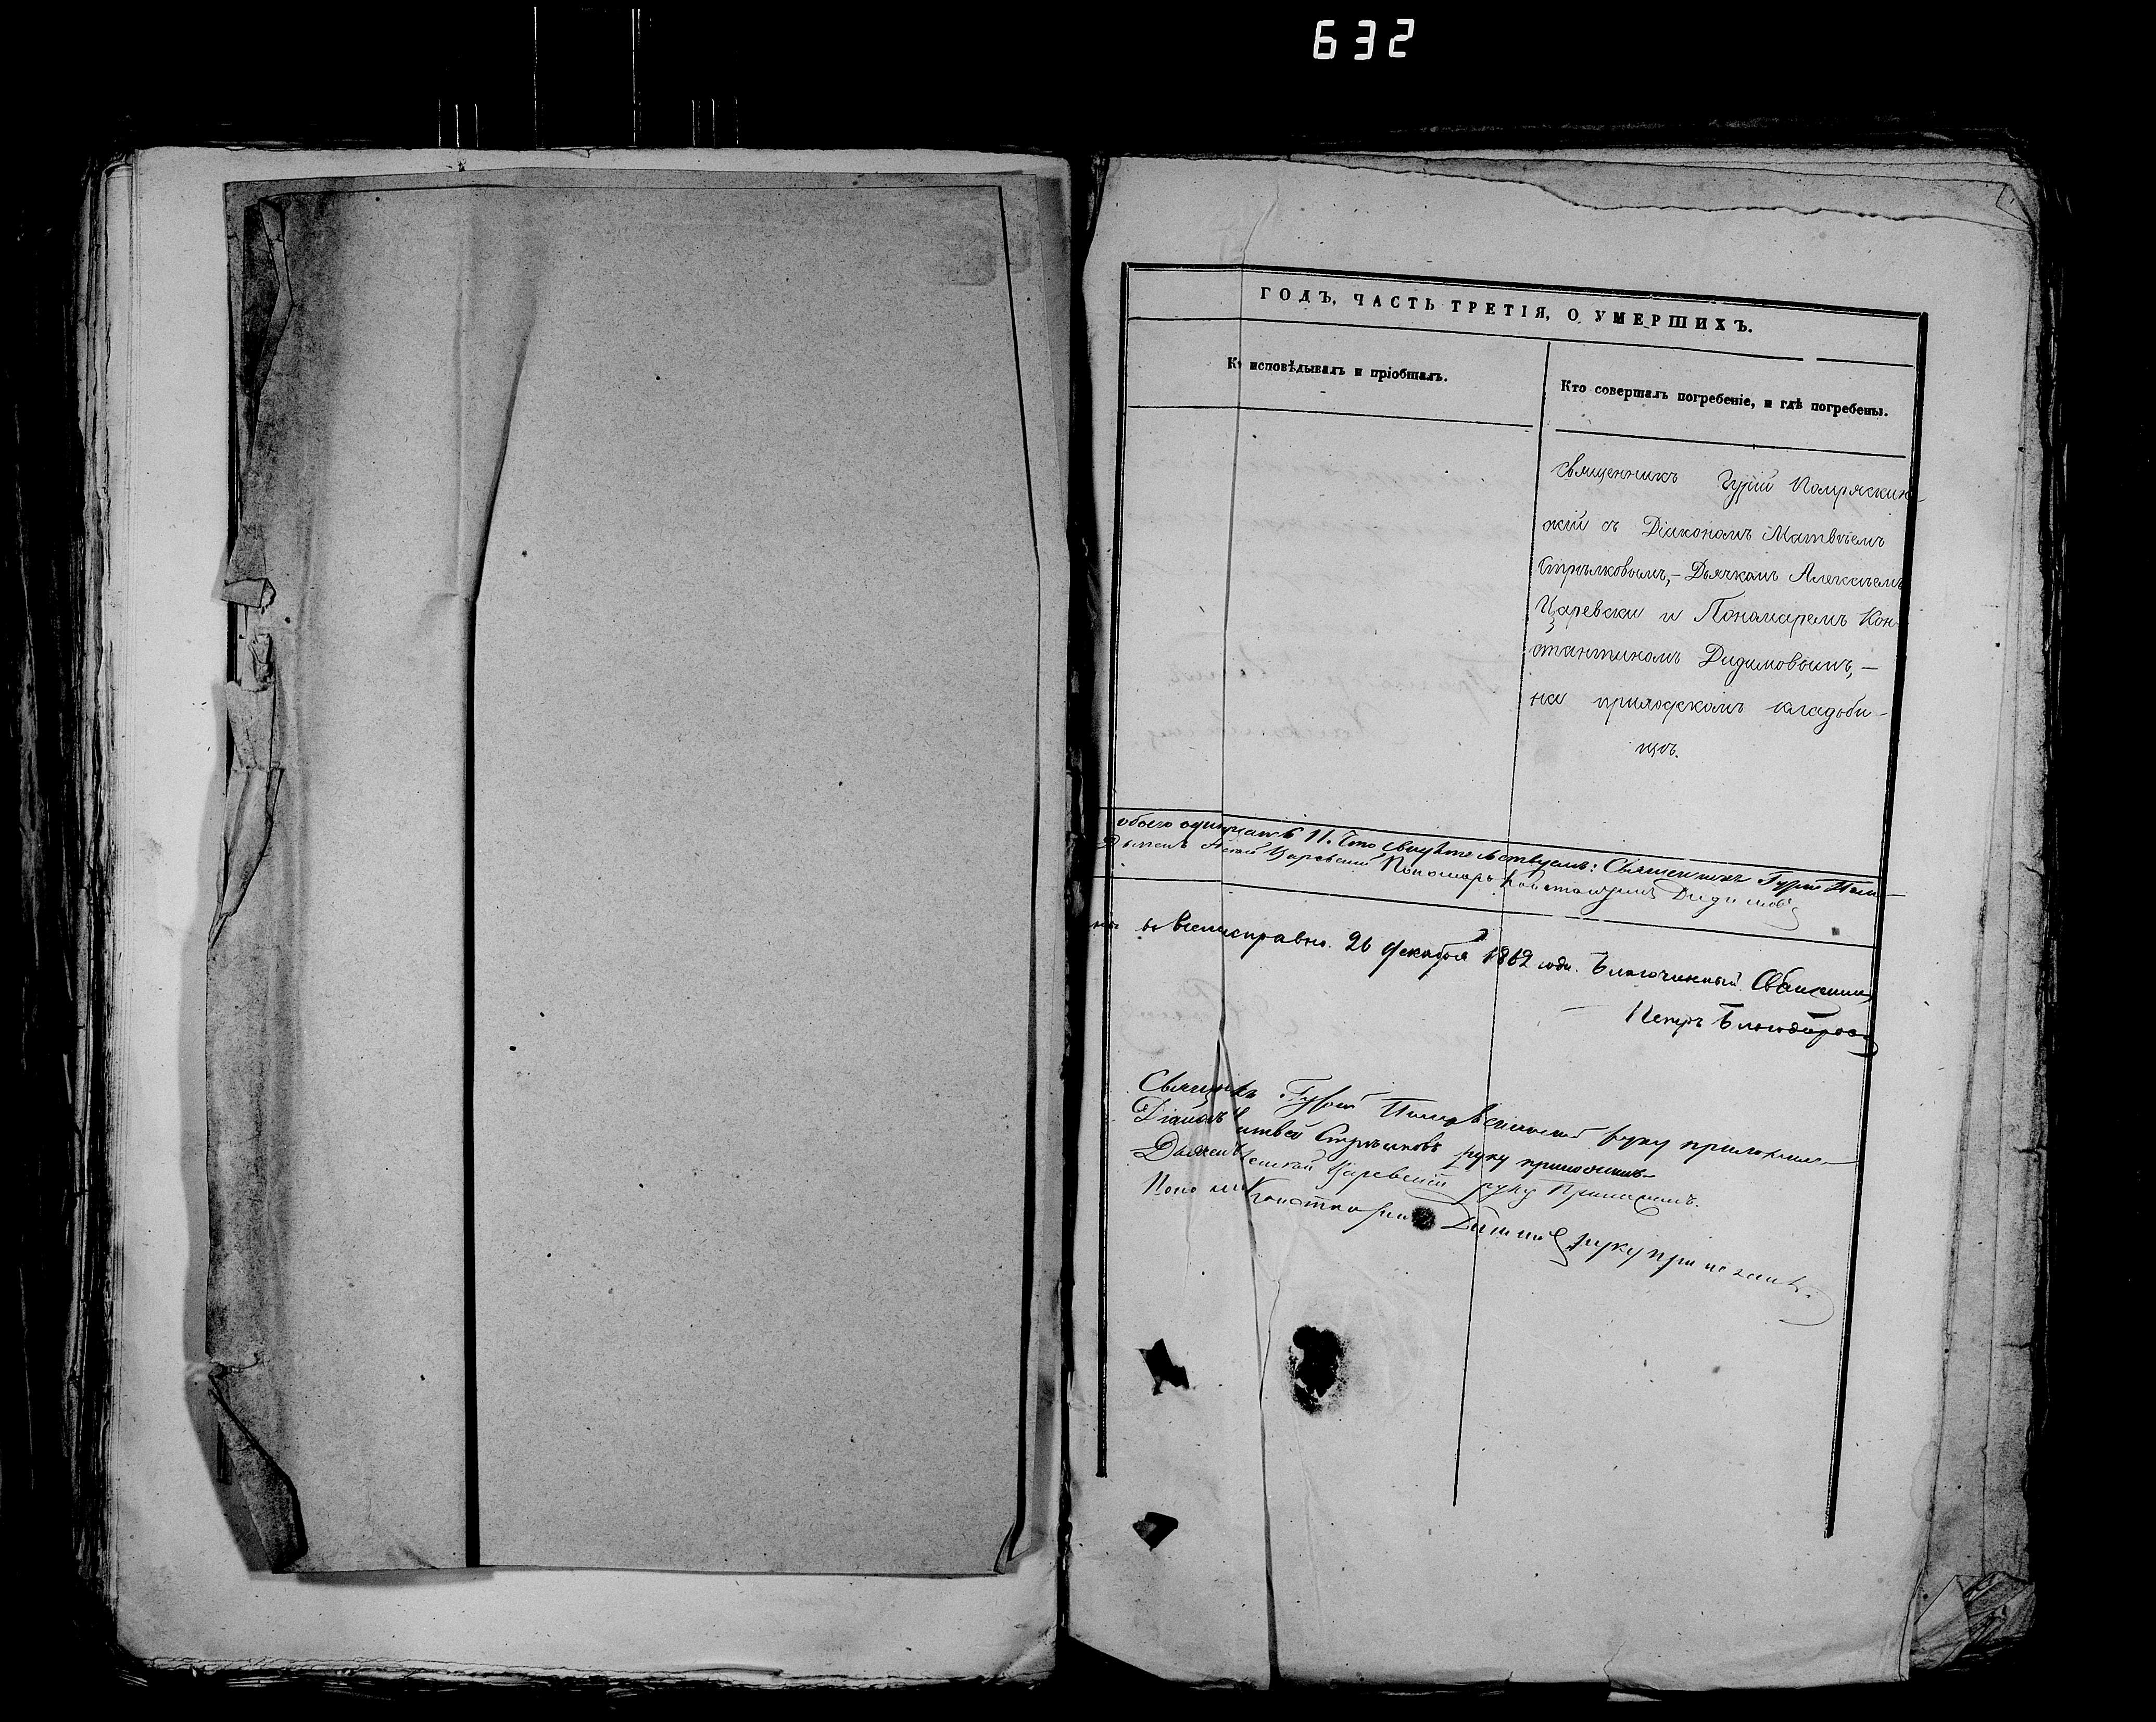 632
ГОДЪ, ЧАСТЬ ТРЕТІЯ, О УМЕРШИХЪ.
исповѣдывалъ и пріобщалъ.
Кто совершалъ погребеніе, и гдѣ погребены.
Священникъ Гурій Помряскин-
скій съ Діакономъ Матвѣемъ
Стрѣлковымъ, – Дьячкомъ Алексѣемъ
Царевски и Пономаремъ Кон-
стантиномъ Дидимовымъ, –
на приходскомъ кладби-
щѣ.
обоего одинцать 11. Что свидѣтельствуемъ: Священникъ Гурій Пом-
Дьячекъ Царевскій Пономарь Константинъ Дидимовъ
исправно. 26 декабря 1862 года. Благочинный Священникъ
Петръ
Гурій руку приложилъ
Діаконъ Матвей Стрѣлковъ руку приложилъ
Дьячекъ Царевскій руку приложилъ.
Константинъ руку приложилъ.